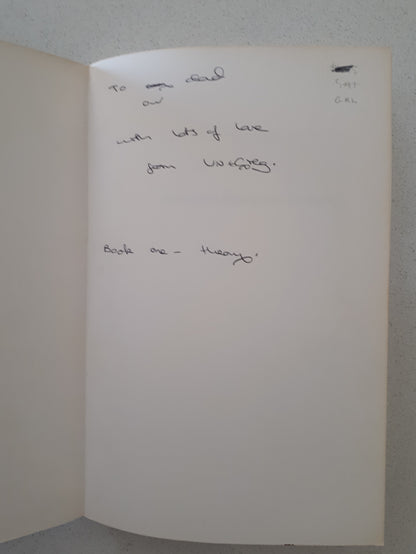 To dad
our
with lots of love
from Viv & Greg.
Book one - theory.